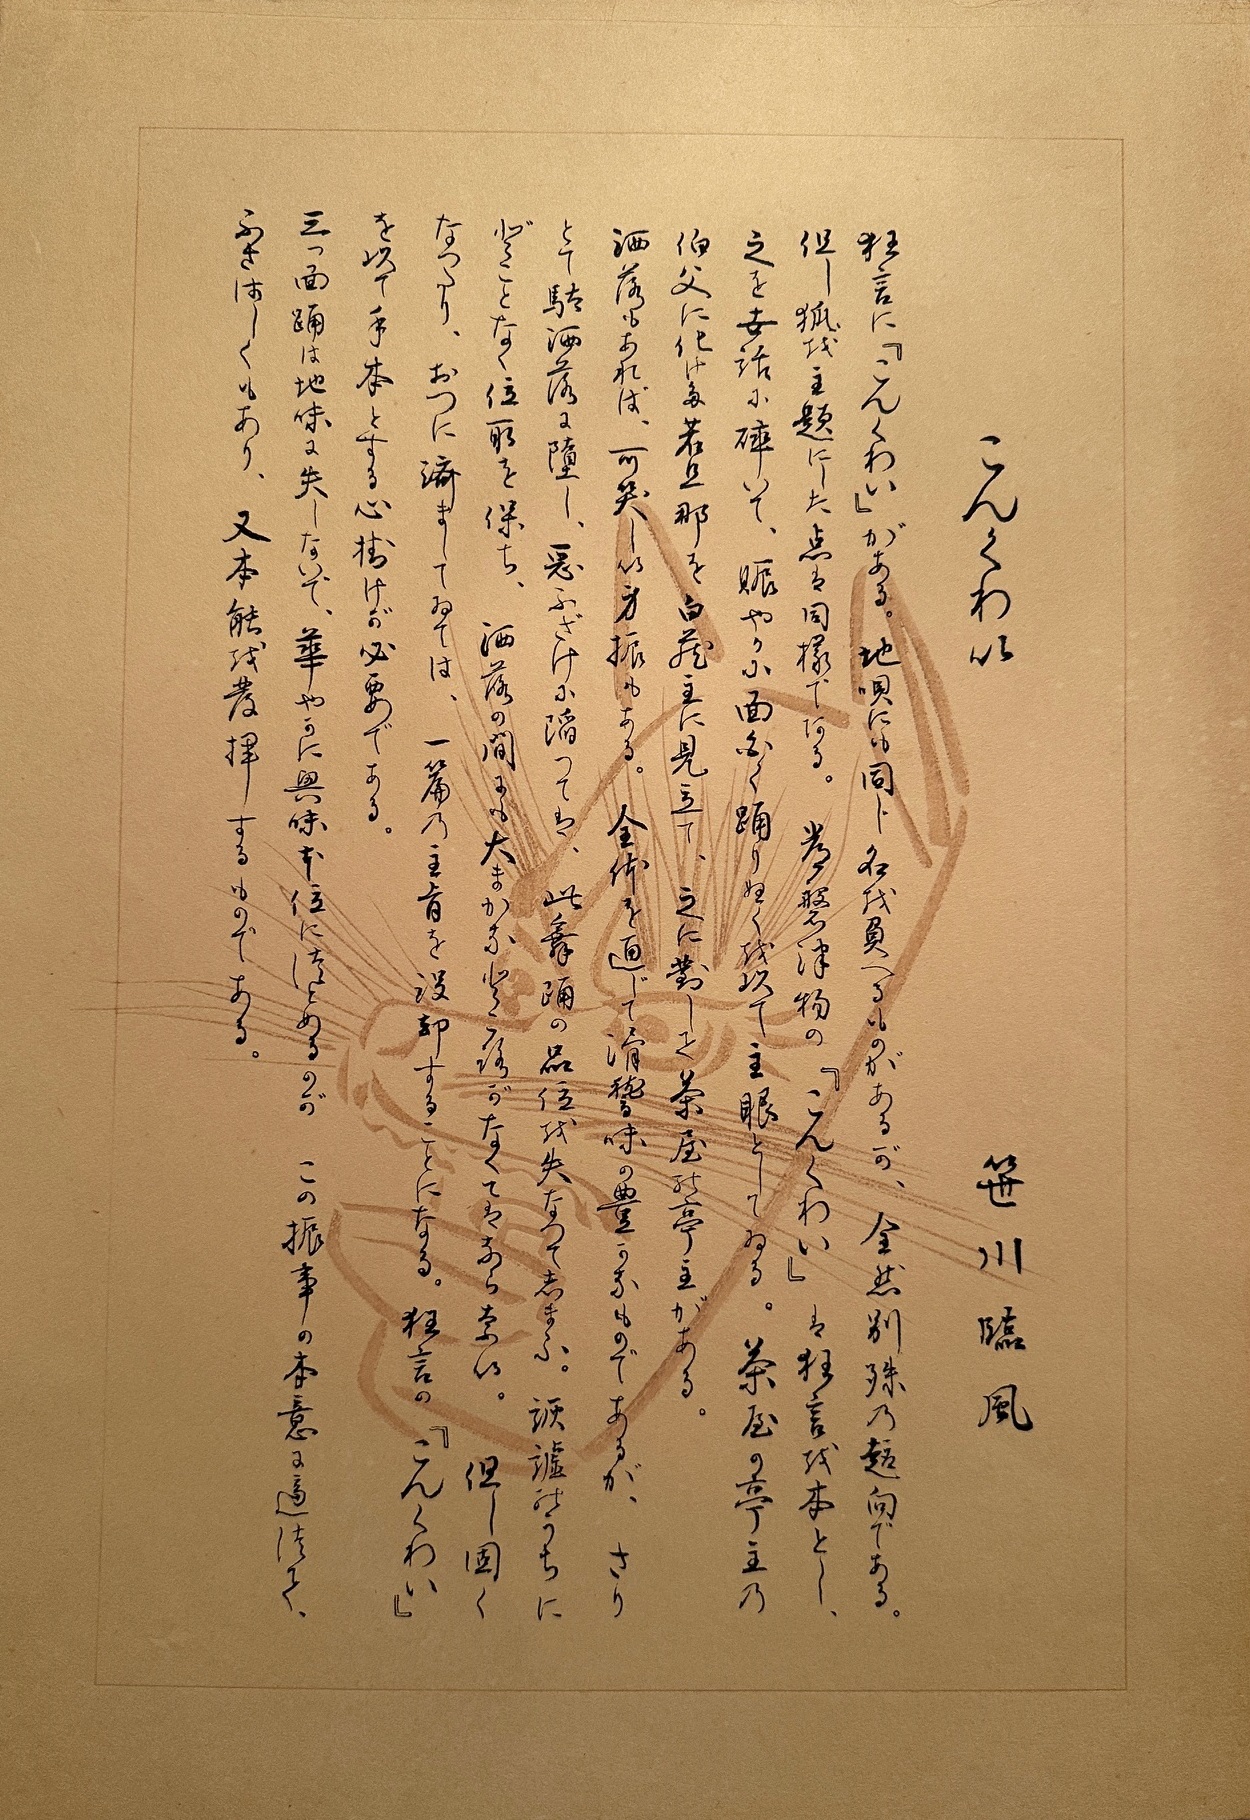 こんくわい
笹川臨風
狂言に『こんくわい』がある。地唄にも同じ名を負へるものがあるが、全然別種の趣向である。
但し狐を主題にした点は同様である。常磐津物の『こんくわい』は狂言を本とし、
之を世話に砕いて、賑やかに面白く踊りぬくを以て主眼としてゐる。茶屋の亭主の
伯父に化けた若旦那を白蔵主に見立て、之に対して茶屋の亭主がある。
洒落もあれば、可笑しい身振もある。全体を通じて滑稽味の豊かなものであるが、さり
とて駄洒落に堕し、悪ふざけに陥つては、此舞踊の品位を失なつてしまふ。諧謔のうちに
どことなく位取を保ち、洒落の間にも大まかな処がなくてはならない。但し固く
なつたり、おつに済ましてゐては、一篇の主旨を没却することになる。狂言の『こんくわい』
を以て手本とする心掛けが必要である。
三つ面踊は地味に失しないで、華やかに興味本位につとめるのが この振事の本意に適つて、
ふさはしくもあり、又本能を発揮するものである。